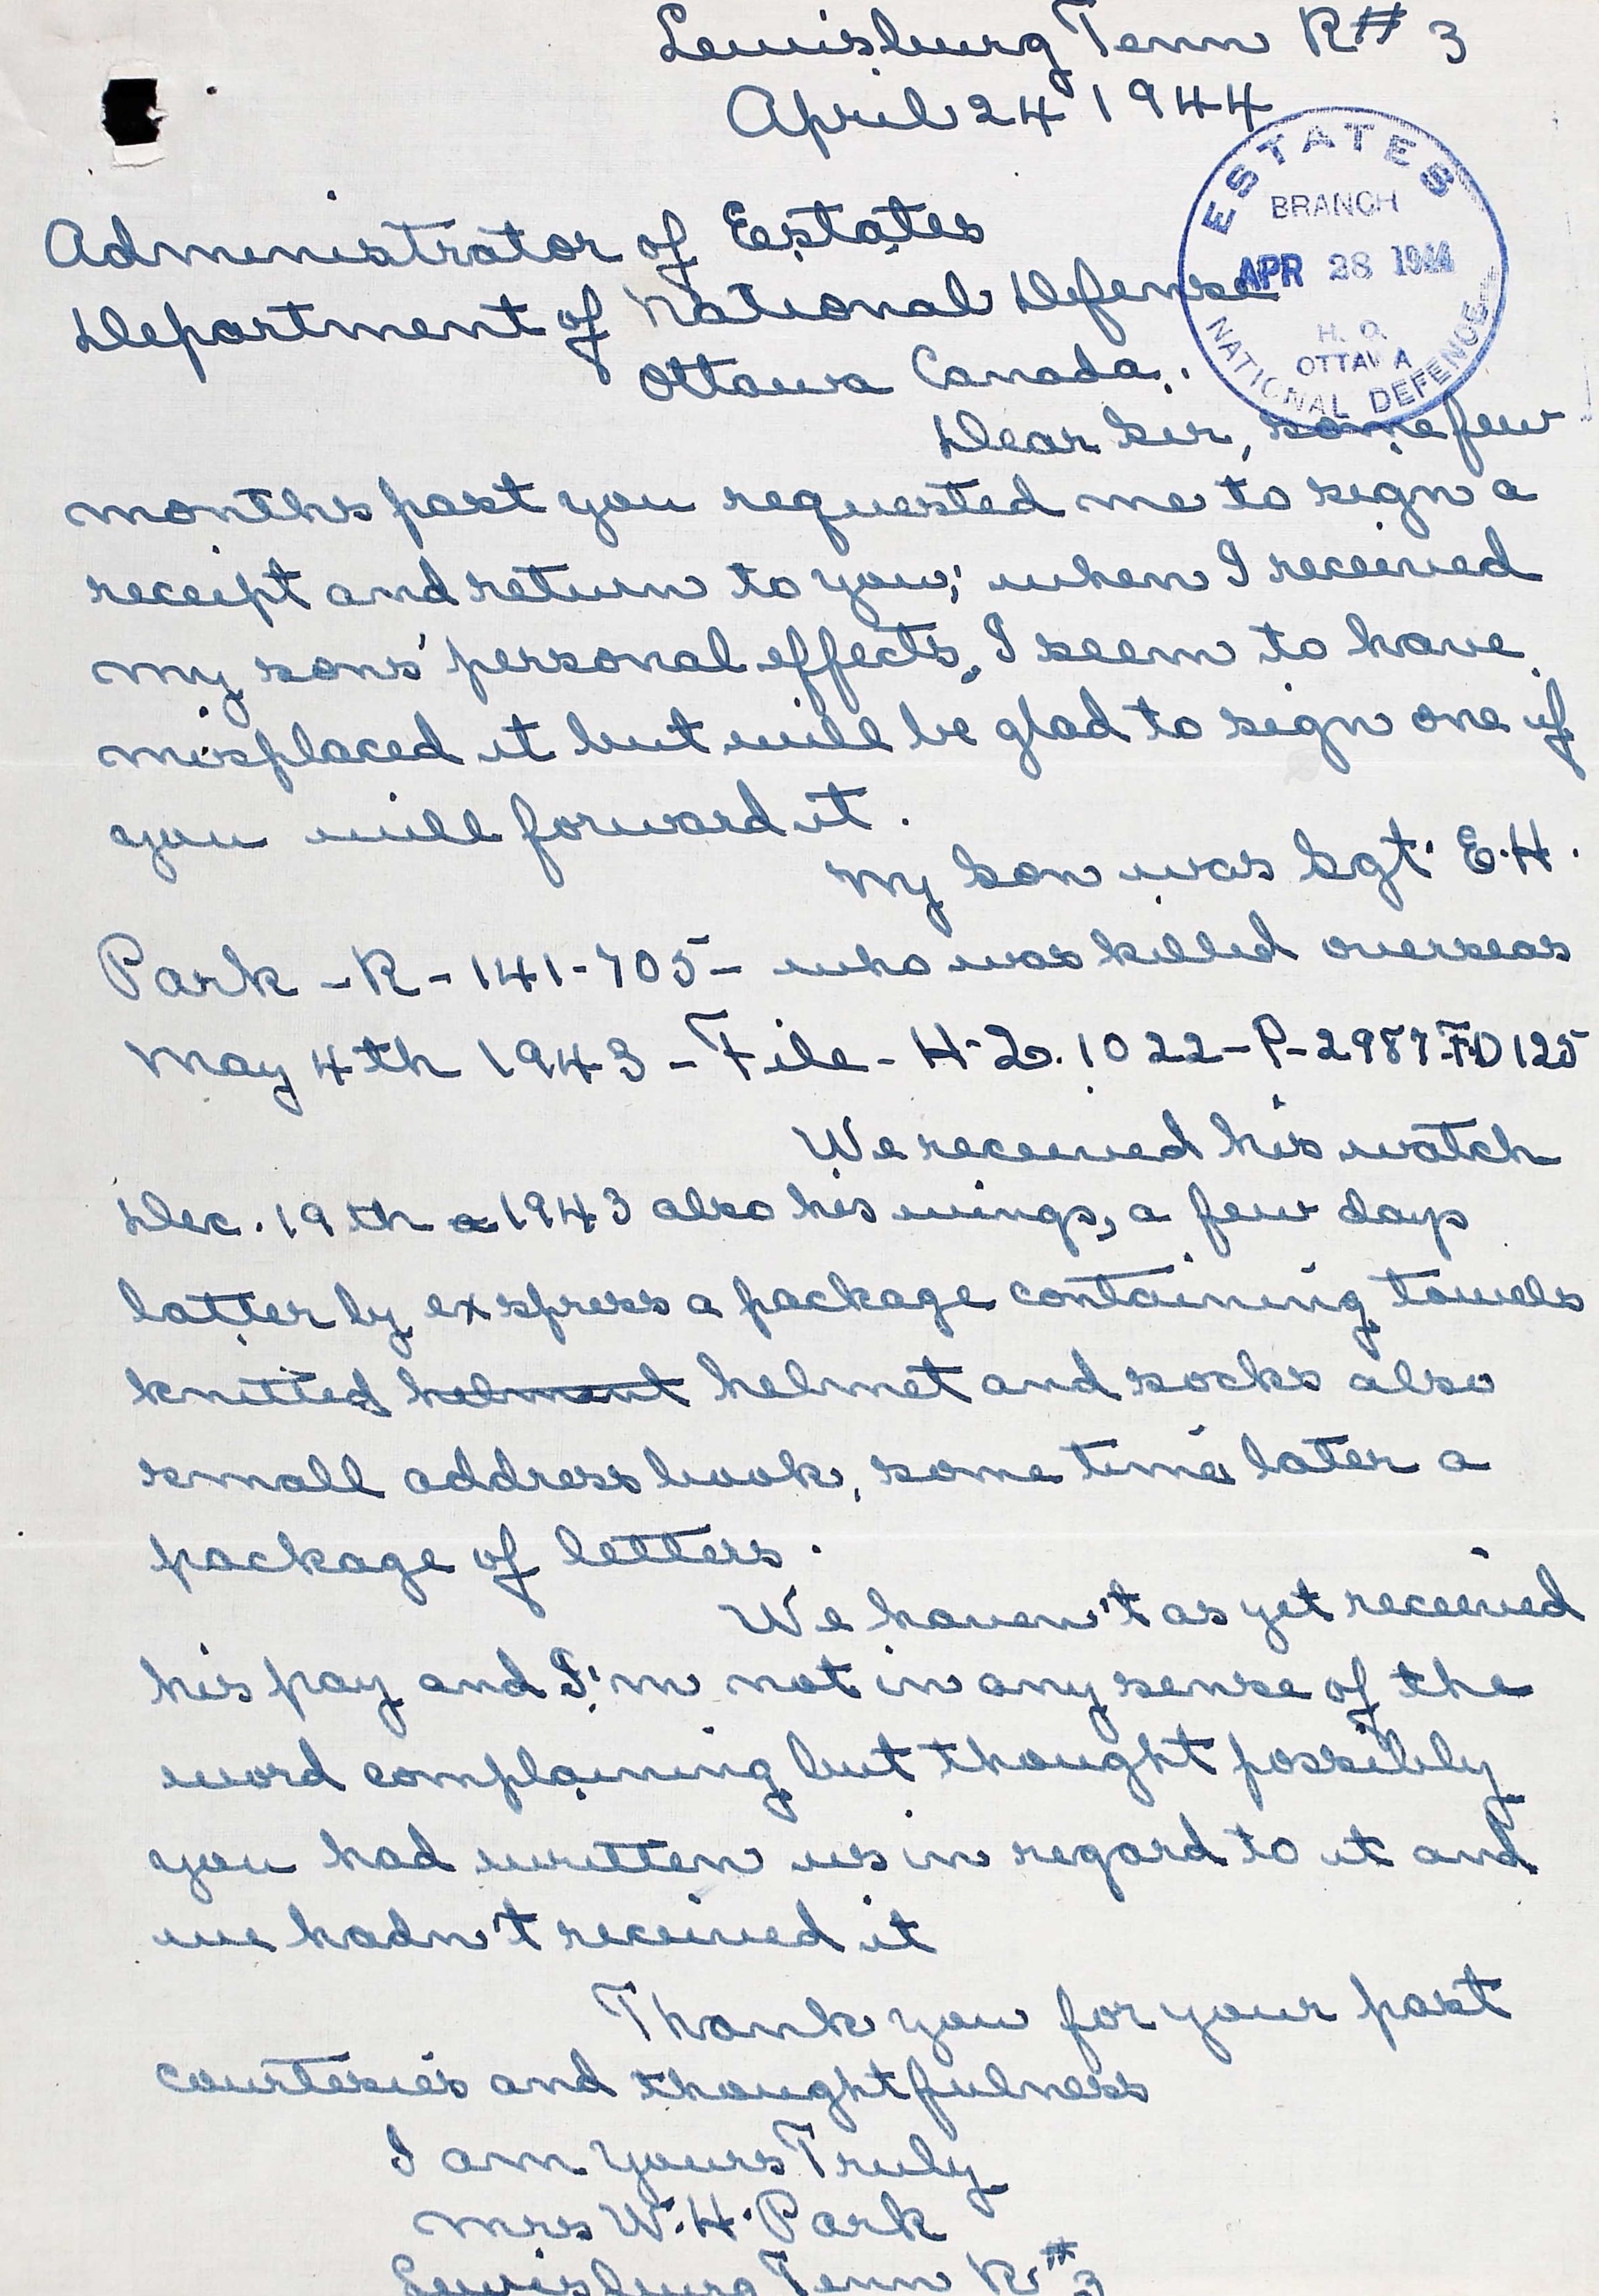 Lewisburg Tenn R# 3
April 24 1944
ESTATES
BRANCH
APR 28 1944
H. Q.
OTTAWA
NATIONAL DEFENCE
Administrator of Estates
Department of National Defense
Ottawa Canada.
Dear Sir, some few
months past you requested me to sign a
receipt and return to you; when I received
my sons' personal effects. I seem to have
misplaced it but will be glad to sign one if
you will forward it.
My son was Sgt. E.H.
Park - R - 141-705 - who was killed overseas
May 4th 1943 - File - H.Q. 1022-P-2987-FD125
We received his watch
Dec. 19th a 1943 also his wings, a few days
latter by express a package containing towels
knitted helment helmet and socks also
small address book, some time later a
package of letters.
We haven't as yet received
his pay and I'm not in any sense of the
word complaining but thought possibly
you had written us in regard to it and
we hadn't received it
Thank you for your past
courtesies and thoughtfulness
I am Yours Truly
Mrs W.H. Park
Lewisburg Tenn R#3